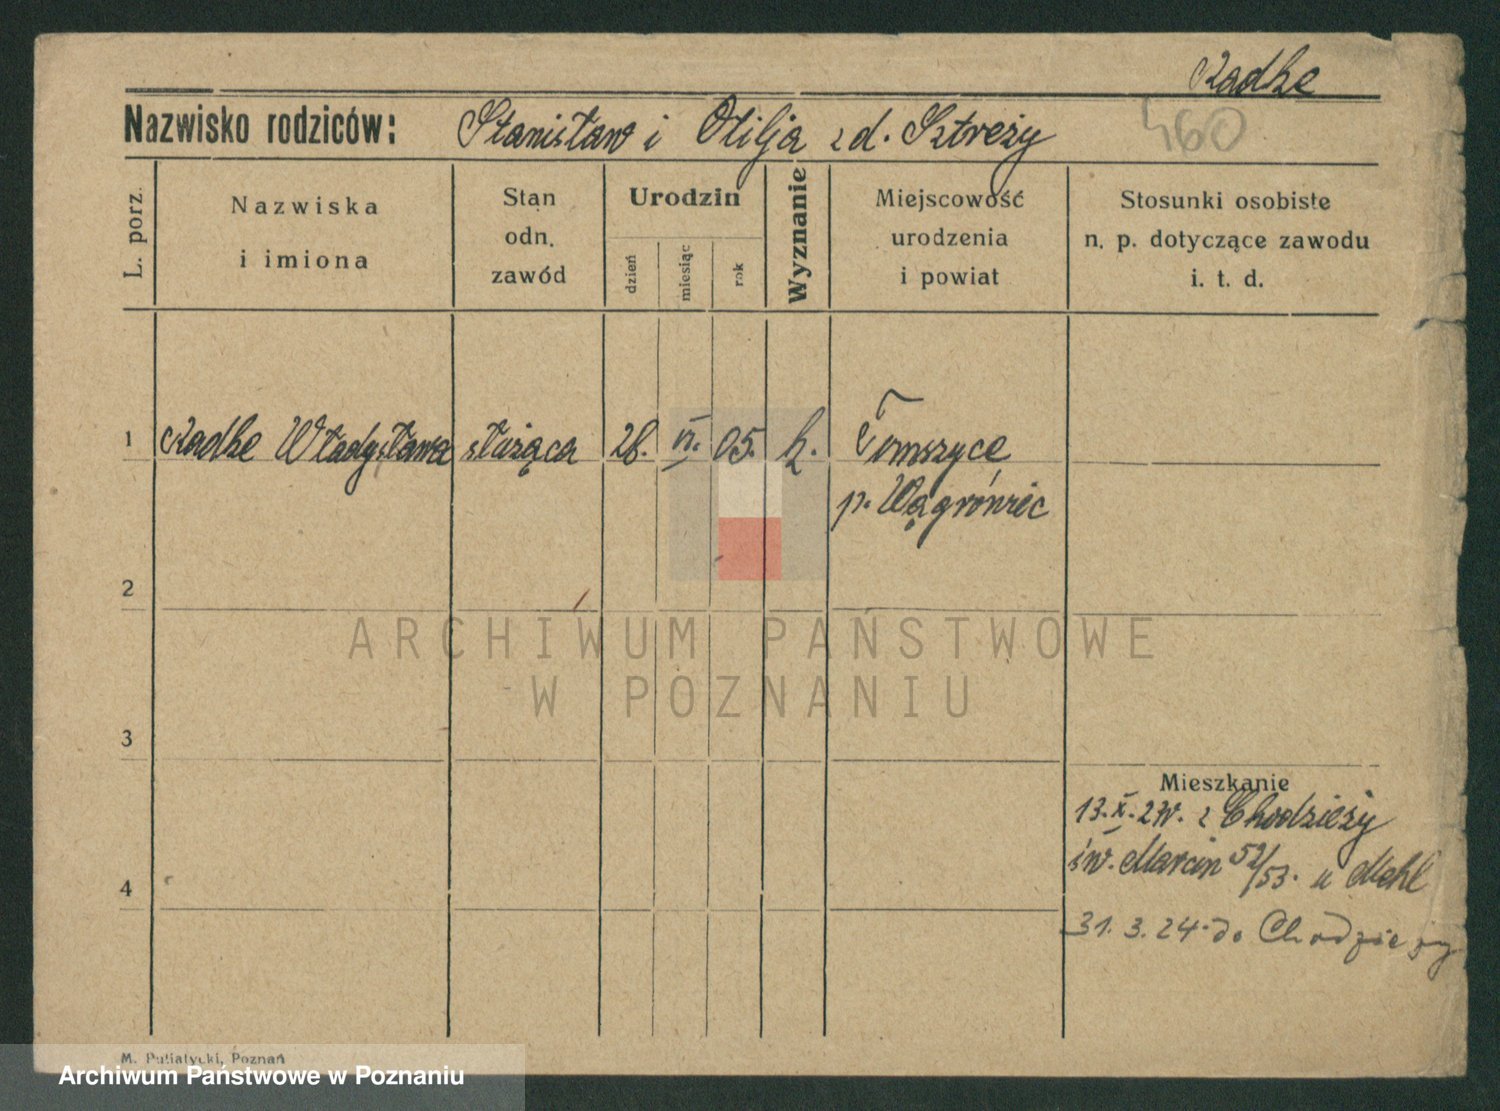 Radke
Nazwisko rodziców: Stanisław i Otilja z d. Sztreży
460
L. porz.
Nazwiska
i imiona
Stan
odn.
zawód
Urodzin
dzień
miesiąc
rok
Wyznanie
Miejscowość
urodzenia
i powiat
Stosunki osobiste
n. p. dotyczące zawodu
i. t. d.
1 Radke Władysława służąca 28. VI. 05. k. Tomszyce
p. Wągrówiec
2
3
4
Mieszkanie
13.X.23r. z Chodzieży
św. Marcin 52/53. u Mehl
31.3.24 do Chodzieży
ARCHIWUM PAŃSTWOWE
W POZNANIU
M. Putiatycki, Poznań
Archiwum Państwowe w Poznaniu